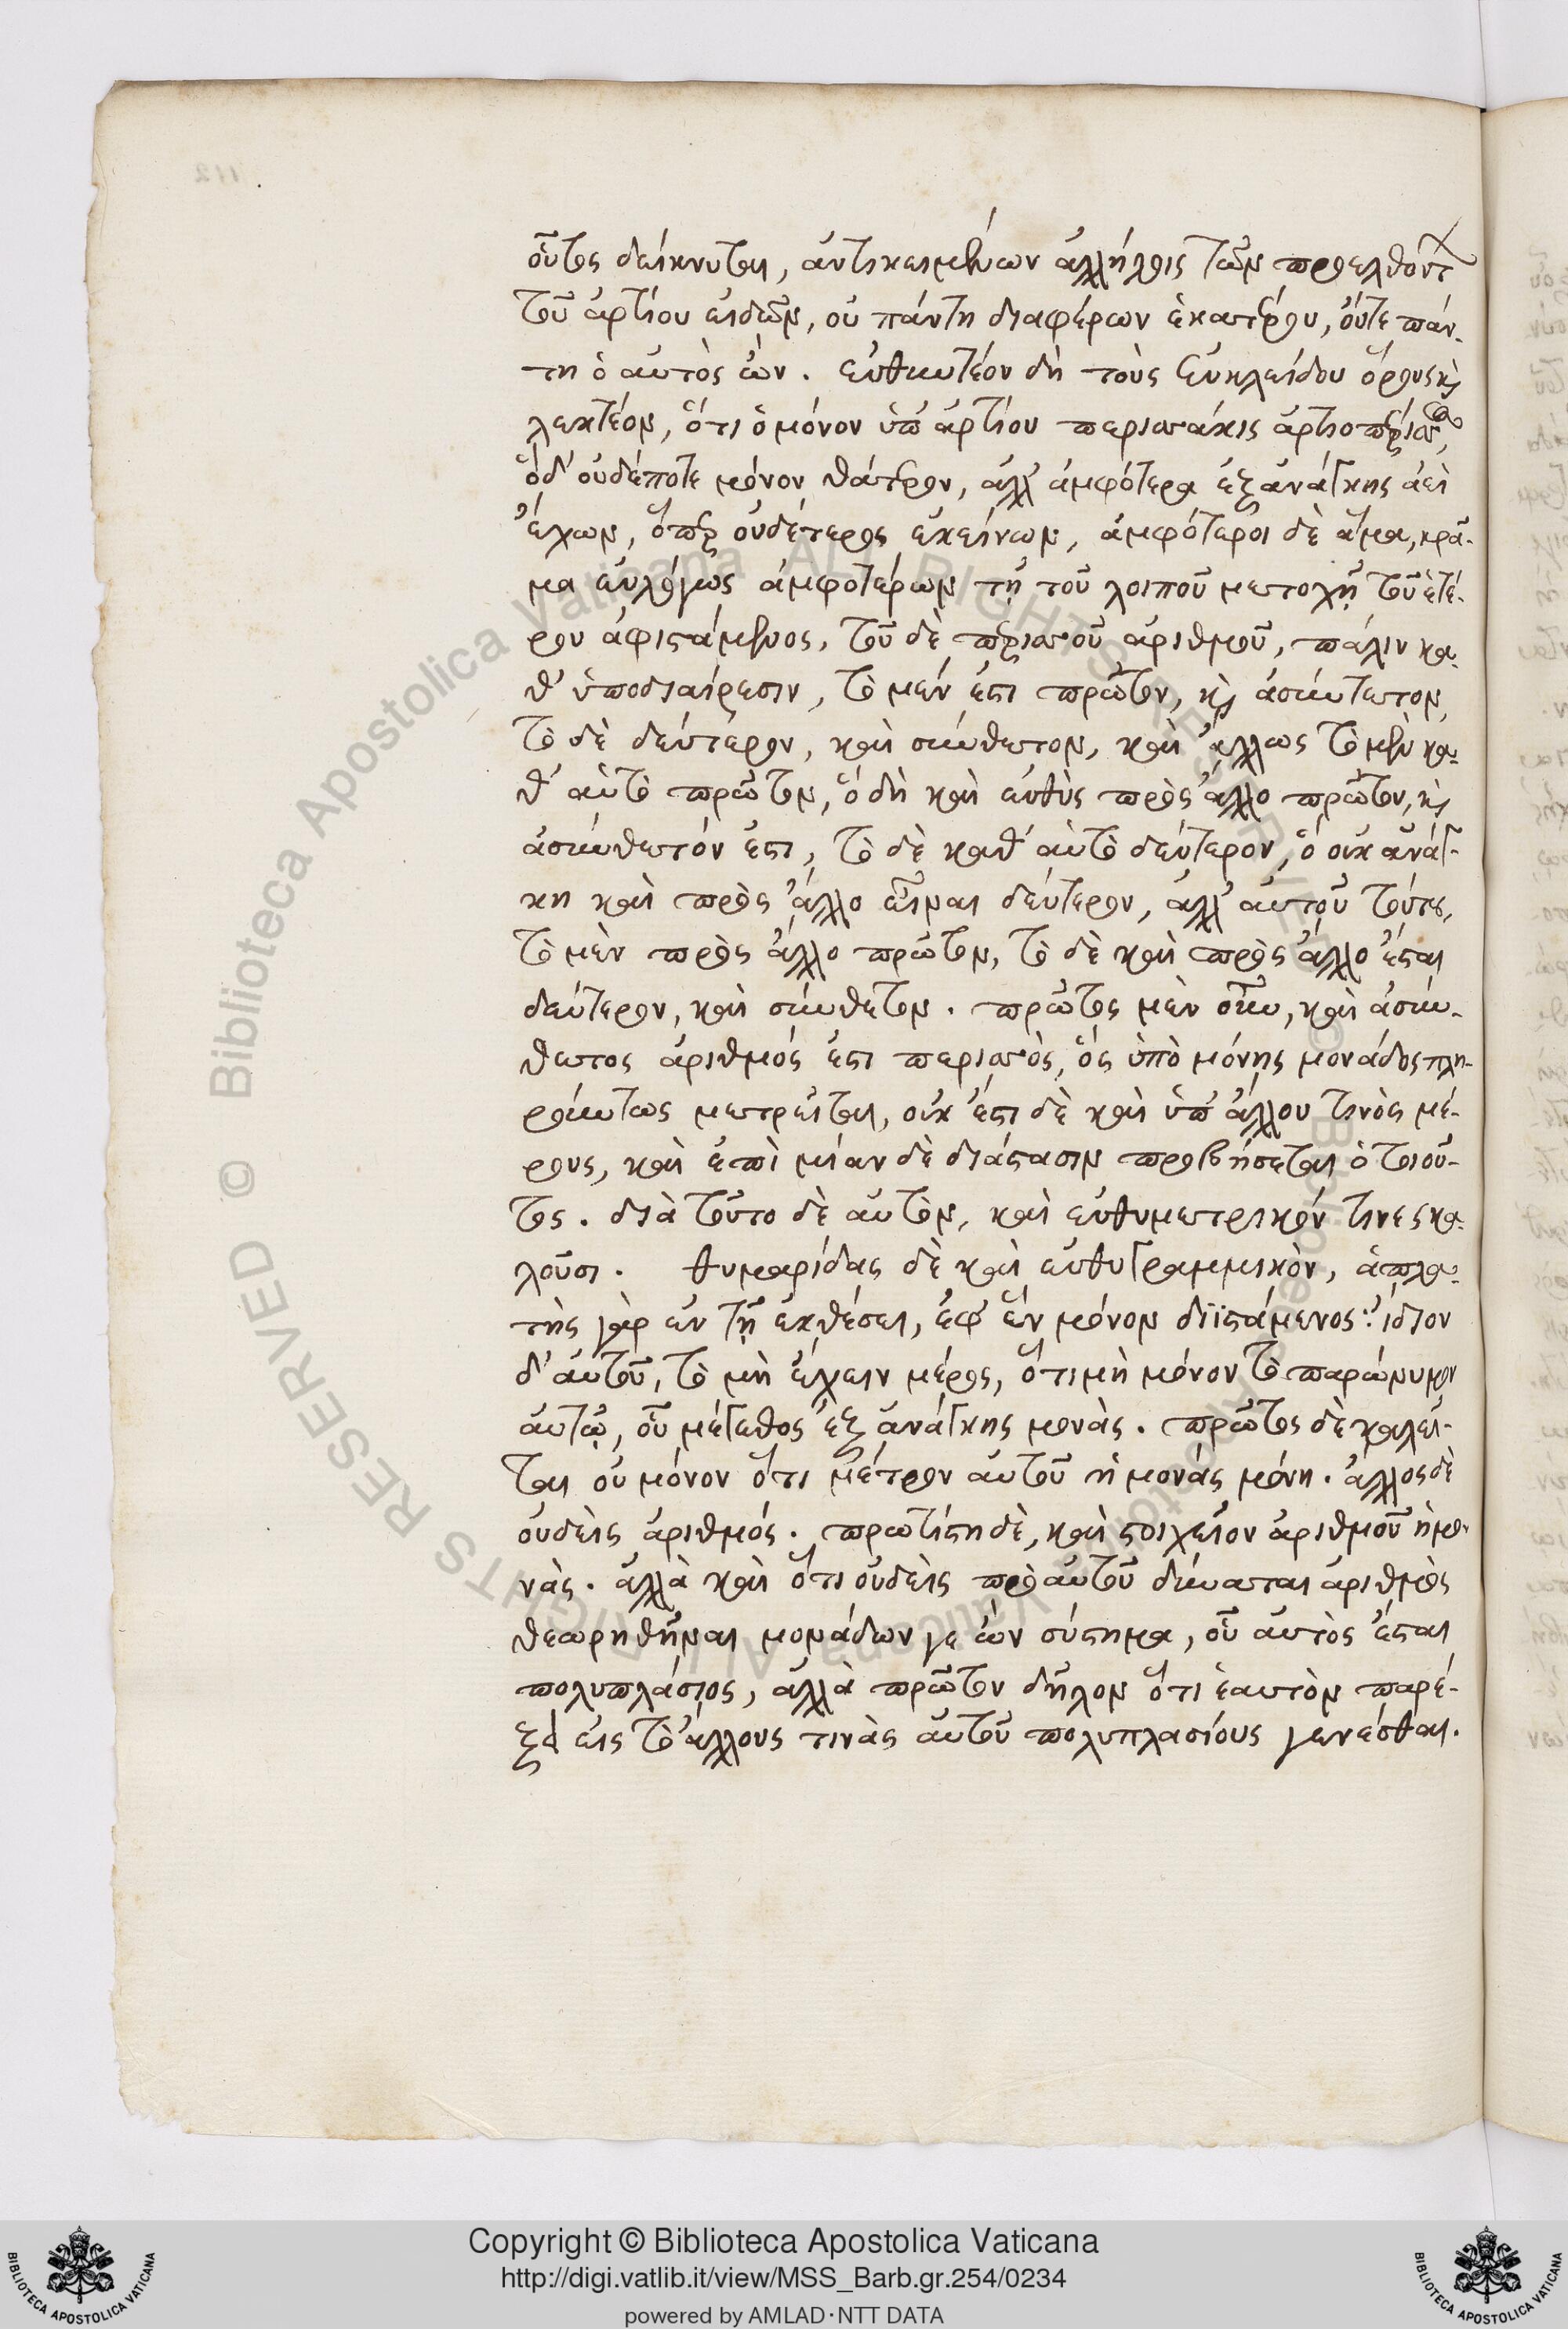 οὗτος δείκνυται, ἀντικειμένων ἀλλήλοις τῶν προελθόντ
τοῦ ἀρτίου εἰδῶν, οὐ πάντη διαφέρων ἑκατέρου, οὔτε πάν-
τη ὁ αὐτὸς ὤν. εὐθυντέον δὴ τοὺς Εὐκλείδου ὅρους κỳ
λεκτέον, ὅτι ὁ μόνον ὑπ' ἀρτίου περισσάκις ἀρτιοπέρισσος,
ὁ δ' οὐδέποτε μόνον θάτερον, ἀλλ' ἀμφότερα ἐξ ἀνάγκης ἀεὶ
ἔχων, ὅπερ οὐδέτερος ἐκείνων, ἀμφότεροι δὲ ἅμα, κρᾶ-
μα εὐλόγως ἀμφοτέρων τῇ τοῦ λοιποῦ μετοχῇ τοῦ ἑτέ-
ρου ἀφιστάμενος, τοῦ δὲ περισσοῦ ἀριθμοῦ, πάλιν κα-
θ' ὑποδιαίρεσιν, τὸ μέν ἐστι πρῶτον, καὶ ἀσύνθετον,
τὸ δὲ δεύτερον, καὶ σύνθετον, καὶ ἄλλως τὸ μὲν κα-
θ' αὑτὸ πρῶτον, ὃ δὴ καὶ εὐθὺς πρὸς ἄλλο πρῶτον, καὶ
ἀσύνθετόν ἐστι, τὸ δὲ καθ' αὑτὸ δεύτερον, ὃ οὐκ ἀνάγ-
κη καὶ πρὸς ἄλλο εἶναι δεύτερον, ἀλλ' αὐτοῦ τούτου,
τὸ μὲν πρὸς ἄλλο πρῶτον, τὸ δὲ καὶ πρὸς ἄλλο ἔσται
δεύτερον, καὶ σύνθετον. πρῶτος μὲν οὖν, καὶ ἀσύν-
θετος ἀριθμός ἐστι περισσὸς, ὃς ὑπὸ μόνης μονάδος πλη-
ρούντως μετρεῖται, οὐκ ἔστι δὲ καὶ ὑπ' ἄλλου τινὸς μέ-
ρους, καὶ ἐπὶ μίαν δὲ διάστασιν προβήσεται ὁ τοιοῦ-
τος. διὰ τοῦτο δὲ αὐτὸν, καὶ εὐθυμετρικόν τινες κα-
λοῦσι. θυμαρίδας δὲ καὶ εὐθυγραμμικὸν, ἁπλα-
τὴς γὰρ ἐν τῇ ἐκθέσει, ἐφ' ἓν μόνον διϊστάμενος: ἴδιον
δ' αὐτοῦ, τὸ μὴ ἔχειν μέρος, ὅτι μὴ μόνον τὸ παρώνυμον
αὐτῷ, οὗ μέγεθος ἐξ ἀνάγκης μονὰς. πρῶτος δὲ καλεῖ-
ται οὐ μόνον ὅτι μέτρον αὐτοῦ ἡ μονάς μόνη. ἄλλος δὲ
οὐδεὶς ἀριθμός. πρωτίστη δὲ, καὶ στοιχεῖον ἀριθμοῦ ἡ μο-
νὰς. ἀλλὰ καὶ ὅτι οὐδεὶς πρὸ αὐτοῦ δύναται ἀριθμὸς
θεωρηθῆναι μονάδων γε ὢν σύστημα, οὗ αὐτὸς ἔσται
πολυπλάσιος, ἀλλὰ πρῶτον δῆλον ὅτι ἑαυτὸν παρέ-
ξει εἰς τὸ ἄλλους τινὰς αὐτοῦ πολυπλασίους γενέσθαι.
Copyright © Biblioteca Apostolica Vaticana
http://digi.vatlib.it/view/MSS_Barb.gr.254/0234
powered by AMLAD·NTT DATA